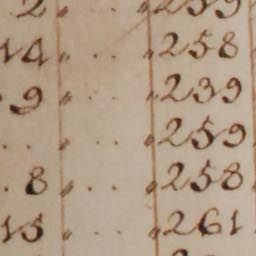 2 " . . " 259
14 " . . " 258
9 " . . " 239
. . " . . " 259
. 8 " . . " 258
15 " . . " 261